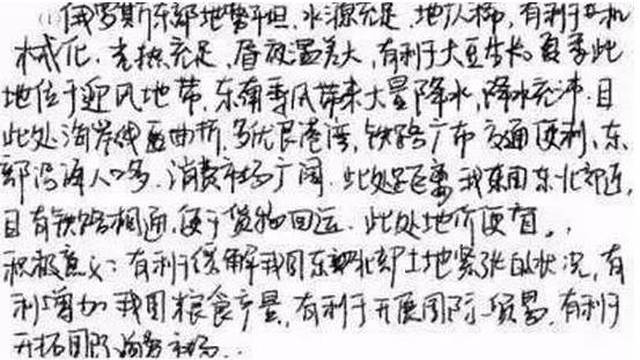 (1) 俄罗斯东部地势平坦,水源充足,地广人稀,有利于机
械化,光热充足,昼夜温差大,有利于大豆生长,夏季此
地位于迎风地带,东南季风带来大量降水,降水充沛.且
此处海岸线曲折,多优良港湾,铁路广布交通便利,东
部沿海人口多,消费市场广阔.此处距离我国东北部近,
且有铁路相通,便于货物回运.此处地价便宜。
积极意义:有利于缓解我国东北部土地紧张的状况,有
利增加我国粮食产量,有利于开展国际贸易,有利于
开拓国际消费市场..